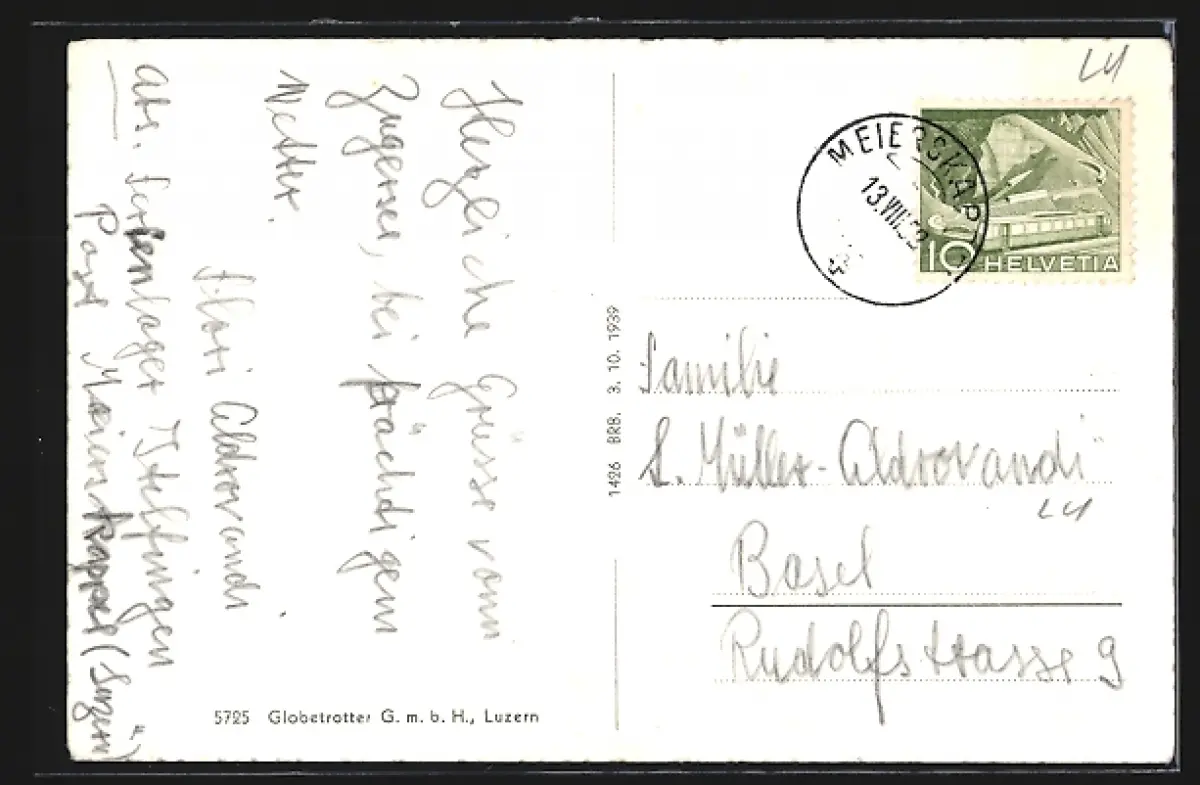 Herzliche Grüsse vom
Zugersee, bei prächdigem
Wetter.
Aldrovandi
Abs. Ferienlager Itelfingen
Post Meierskappel (Luzern)
5725 Globetrotter G. m. b. H., Luzern
1426 BRB. 3. 10. 1939
LU
MEIERSKAPP
13.VII.52
10 HELVETIA
Familie
L. Müller-Aldrovandi
LU
Basel
Rudolfstrasse 9